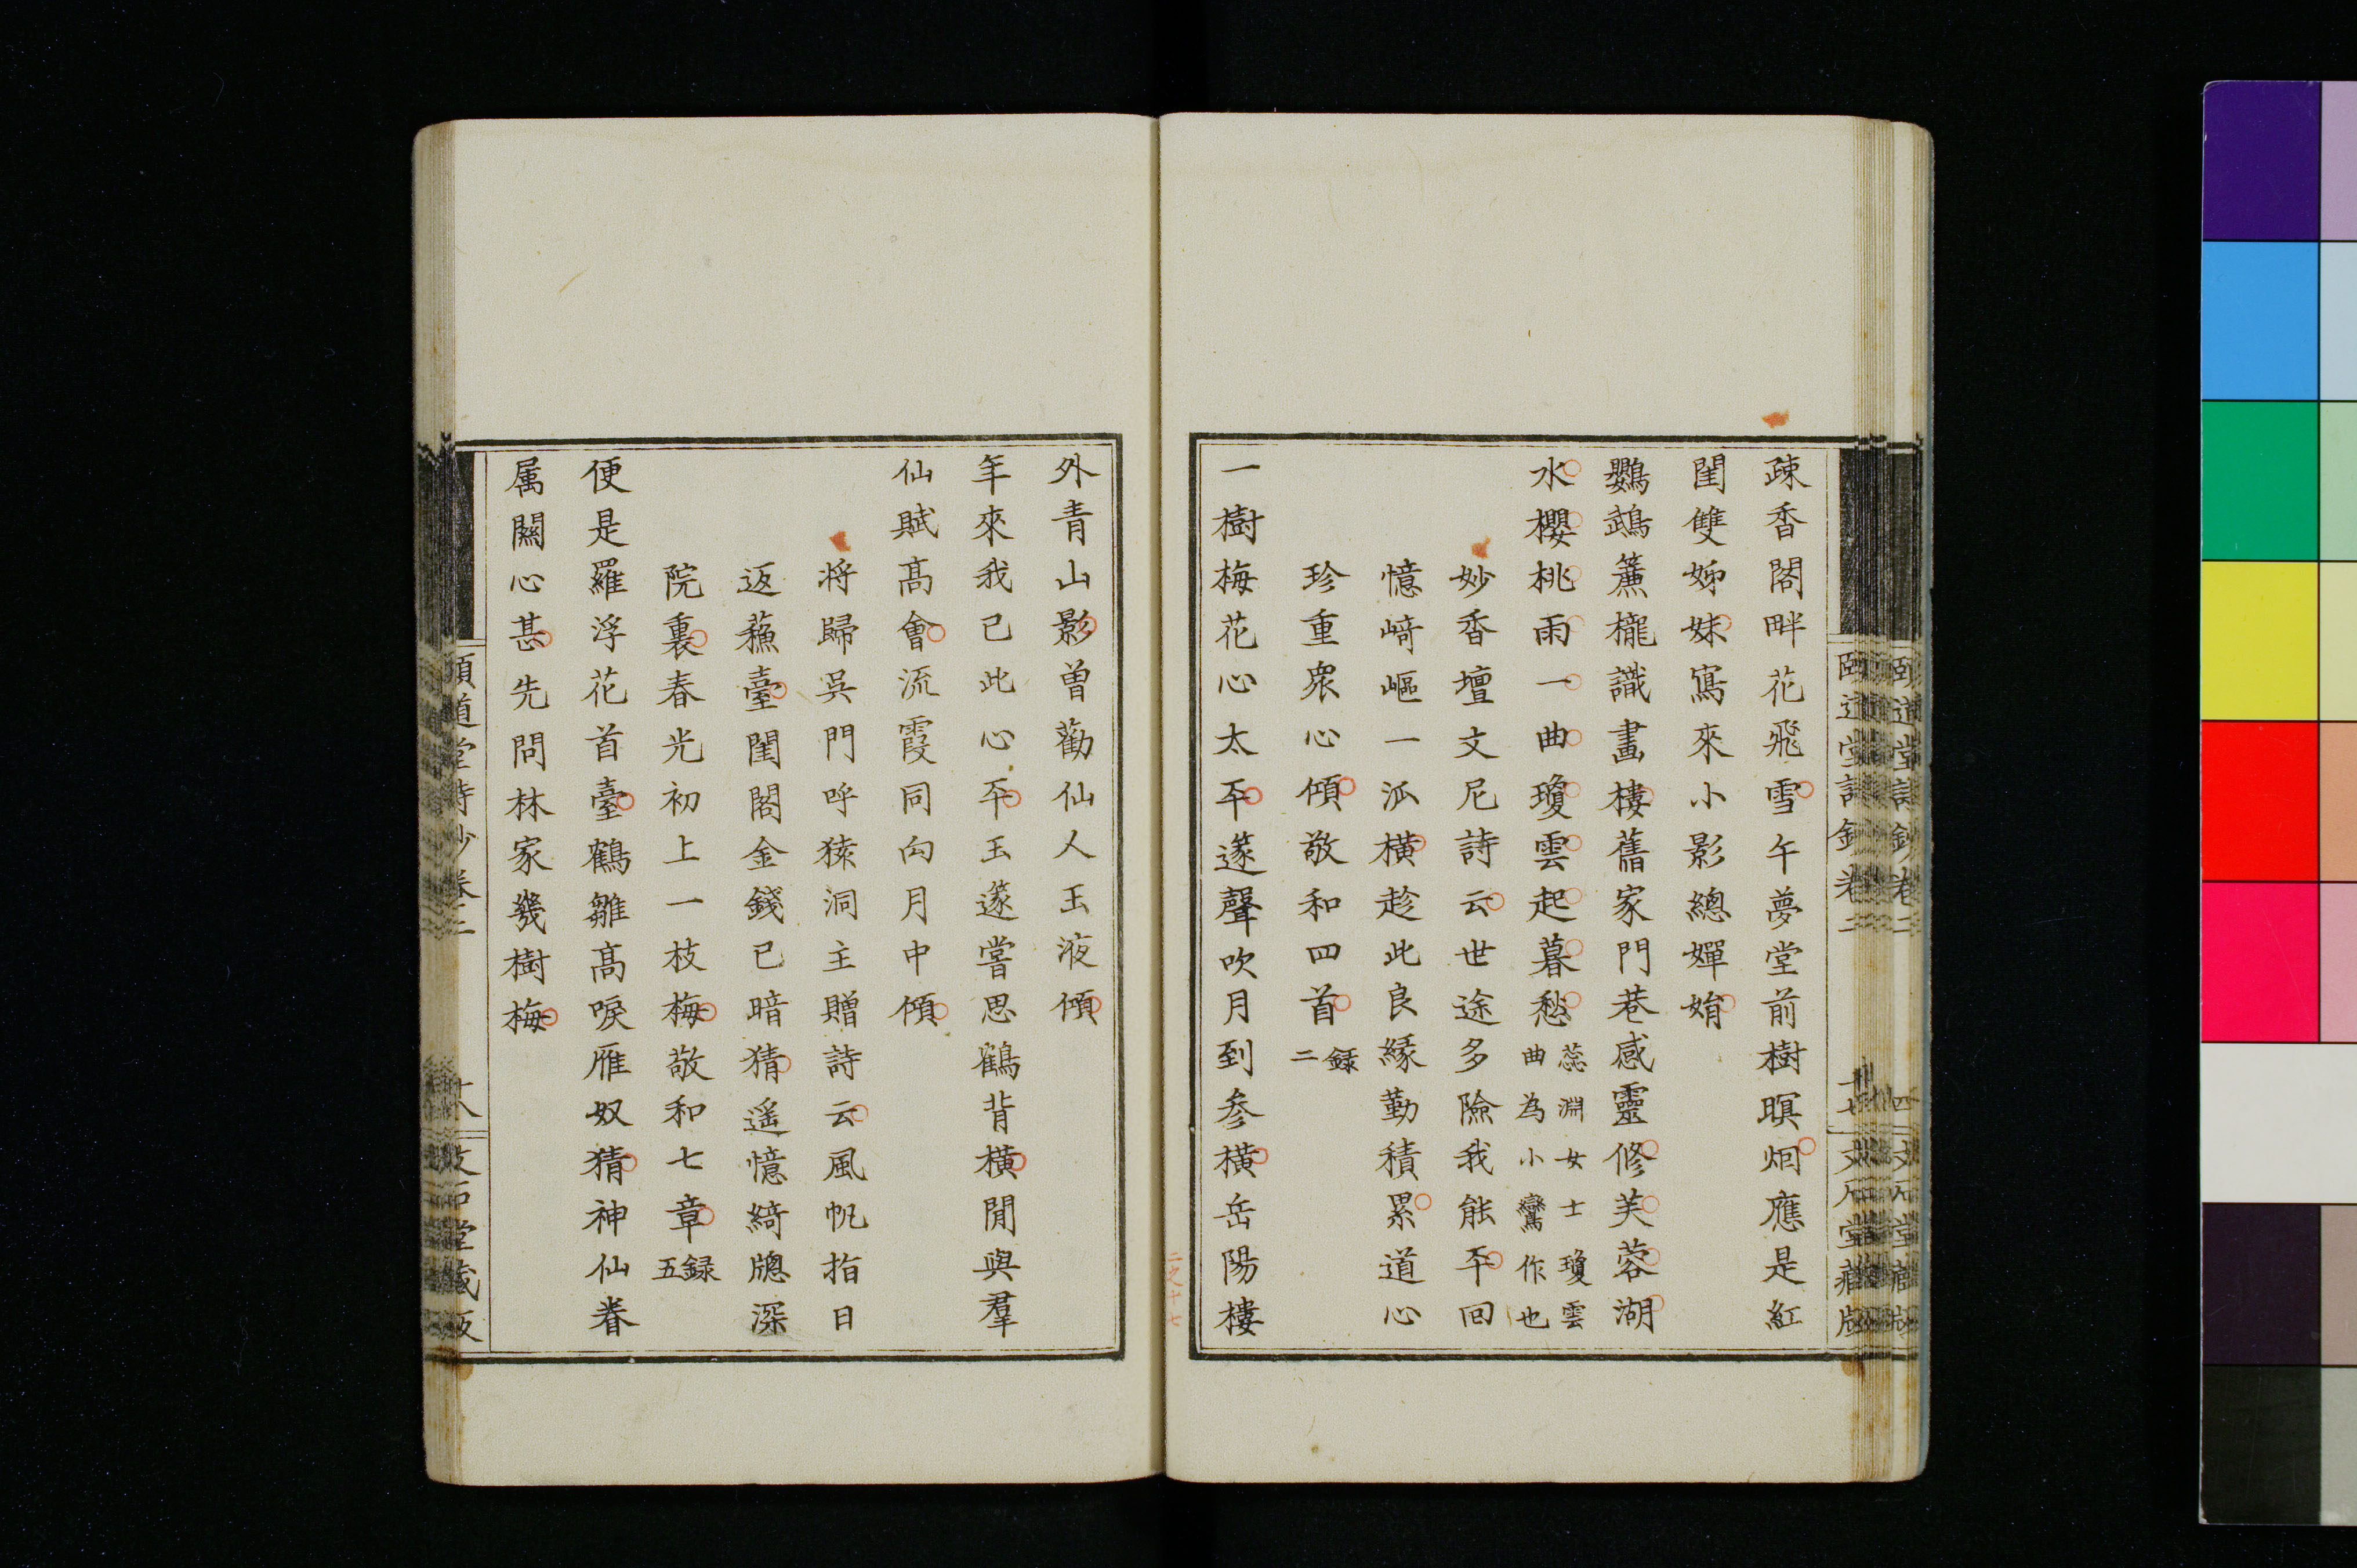 疎香閣畔花飛雪午夢堂前樹暝烟應是紅
閨雙姊妹寫來小影總嬋娟
鸚鵡簾櫳識畫樓舊家門巷感靈修芙蓉湖
水櫻桃雨一曲瓊雲起暮愁蕊淵女士瓊雲
曲為小鸞作也
妙香壇文尼詩云世途多險我能平回
憶崎嶇一泒橫趁此良緣勤積累道心
珍重衆心傾敬和四首錄
二
一樹梅花心太平篴聲吹月到參橫岳陽樓
外青山影曾勸仙人玉液傾
年來我已此心平玉篴嘗思鶴背橫閒與羣
仙賦高會流霞同向月中傾
將歸吳門呼猿洞主贈詩云風帆指日
返蘓臺閨閣金錢已暗猜遥憶綺牕深
院裏春光初上一枝梅敬和七章錄五
便是羅浮花首臺鶴雛高唳雁奴猜神仙眷
属關心甚先問林家幾樹梅
頤道堂詩鈔卷二
文石堂藏版